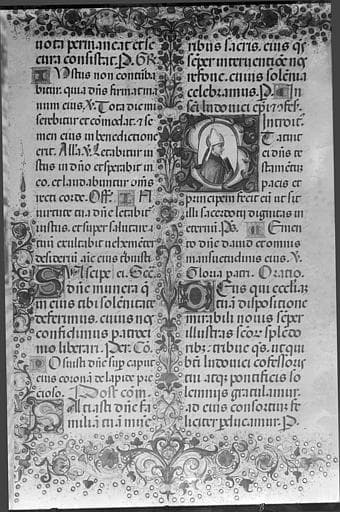 nota permaneat et se
cura consistat. P. GR.
Iustus non conturba
bitur. quia dñs firmat ma
num eius. V. Tota die mi
serebitur et cōmodat. et se
men eius in benedictione
erit. Alla. V. Letabitur in
stus in dño et sperabit in
eo. et laudabuntur oms
recti corde. Off. In
uirtute tua dñe letabit
iustus. et super salutare
tuū exultabit uehementer
desideriū aīe eius tribuisti
Suscipe Sec.
dñe munera q
in eius tibi solēnitate
deferimus. cuius nos
confidimus patroci
nio liberari. Per. Cō.
Posuisti dñe sup caput
eius coronā de lapide pre
cioso. Post com.
Saciasti dñe fa
miliā tuā mune
ribus sacris. eius qs
sēper interuentiōe nos
refoue. cuius solēnia
celebramus. P. In
sc̄i ludouici ep̄i et cōfes.
Introit.
Statuit
ei dñs te
stamētū
pacis et
principem fecit eū ut sit
illi sacerdocij dignitas in
eternū. Ps. Memen
to dñe dauid et omnis
mansuetudinis eius. V.
Gloria patri. Oratio.
Deus qui eccliaz
tuā dispositione
mirabili nouis sēper
illustras sc̄oꝝ splēdo
ribꝫ. tribue qs. ut qui
bti ludouici cōfessoris
tui atqꝫ pontificis so
lemnijs gratulamur.
ad eius consortiū fe
liciter ꝑducamur. P.